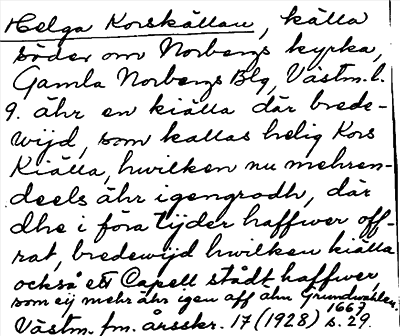 Helga Korskällan, källa
söder om Norbergs kyrka,
Gamla Norbergs Blg, Västm. l.
9. ähr en kiälla där brede-
wijd, som kallas helig Kors
Kiälla, hwilken nu mehren-
deels ähr igengrodh, där
dhe i föra tijder haffwer off-
rat, bredewijd hwilken kiälla
också ett Capell stådt haffwer,
som eij mehr ährs igen aff ähn Grundwahlen.
1667
Västm. fm. årsskr. 17 (1928) s. 29.